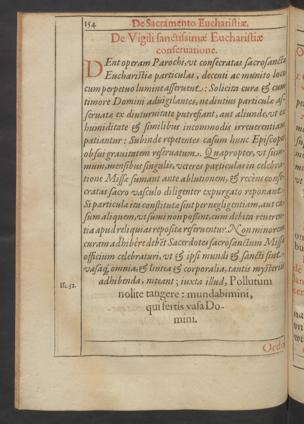 154 De Sacramento Eucharistiæ.
De Vigili sanctissimæ Eucharistiæ
conseruatione.
DEnt operam Parochi, vt consecratas sacrosanctæ
Eucharistiæ particulas, decenti ac munito loco
cum perpetuo lumine asseruent: Solicita cura & cum
timore Domini aduigilantes, ne diutius particulæ as-
seruatæ ex diuturnitate putrescant, aut aliunde, vt ex
humiditate & similibus incommodis irreuerentiam
patiantur: Subinde repetentes casum hunc Episcopo
ob sui grauitatem reseruatum. Quapropter, vt
mum, mensibus singulis, veteres particulas in celebra-
tione Missæ sumant ante ablutionem, & recens conse-
cratas sacro vasculo diligenter expurgato reponant.
Si particulæ ita constitutæ sint per negligentiam, aut ca-
sum aliquem, vt sumi non possint, cum debita reueren-
tia apud reliquias repositæ reseruentur. Non minorem
curam adhibere debet Sacerdotes sacrosanctum Missæ
officium celebraturi, vt & ipsi mundi & sancti sint.
vasaq, omnia, & lintea & corporalia, tantis mysteriis
Is. 52. adhibenda, niteant; iuxta illud, Pollutum
nolite tangere: mundabimini,
qui fertis vasa Do-
mini.
Ordo